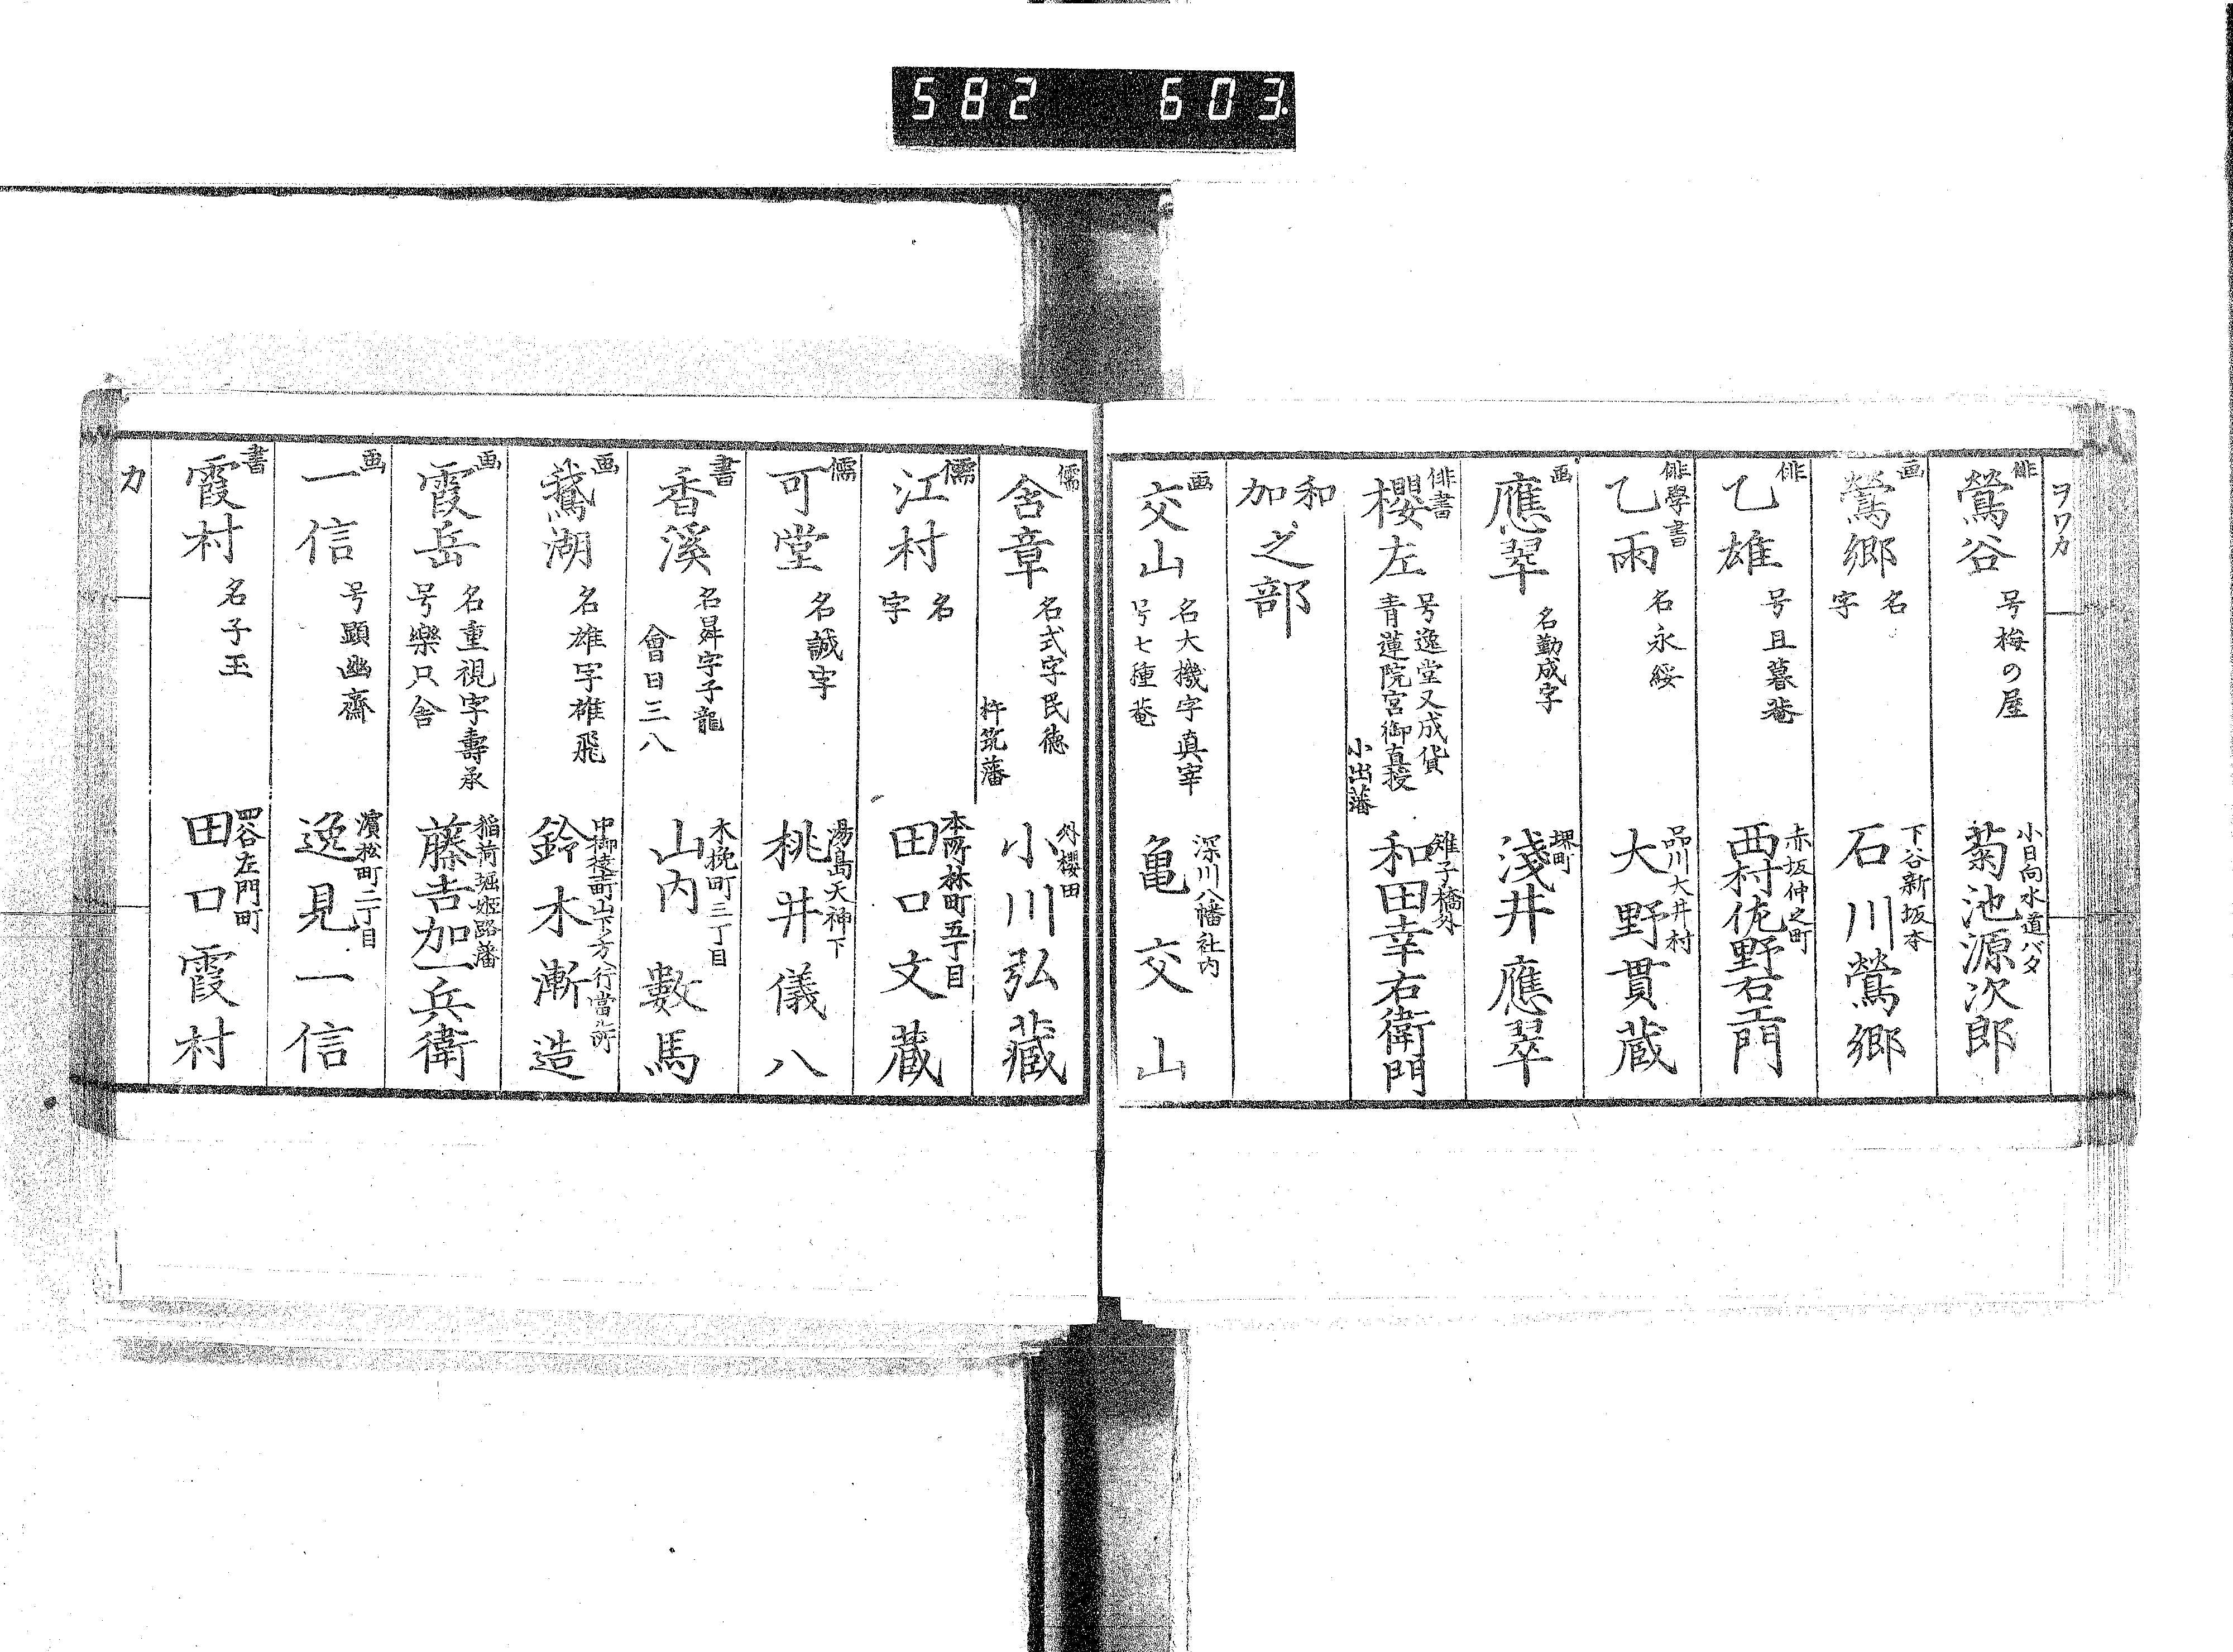 582 603
ヲワカ
俳 鶯谷 号梅の屋 小日向水道バタ 菊池源次郎
画 鶯郷 名 字 下谷新坂本 石川鶯郷
俳 乙雄 号且暮菴 赤坂仲之町 西村佐野右エ門
俳學書 乙雨 名永綏 品川大井村 大野貫蔵
画 應翠 名勤成字 堺町 淺井應翠
俳書 櫻左 号逸堂又成貨 青蓮院宮御直授 小出藩 雉子橋外 和田幸右衛門
和
加之部
画 交山 名大機字真宰 号七種菴 深川八幡社内 亀交山
儒 含章 名式字民徳 杵筑藩 外櫻田 小川弘藏
儒 江村 名 字 本所林町五丁目 田口文蔵
儒 可堂 名誠字 湯島天神下 桃井儀八
書 香溪 名昇字子龍 會日三八 木挽町三丁目 山内數馬
画 鵞湖 名雄字雄飛 中御徒町山下ノ方行當街 鈴木漸造
画 霞岳 名重視字壽承 号樂只舎 稲荷堀姫路藩 藤吉加一兵衛
画 一信 号顕幽齋 濱松町二丁目 逸見一信
書 霞村 名子玉 四谷左門町 田口霞村
カ